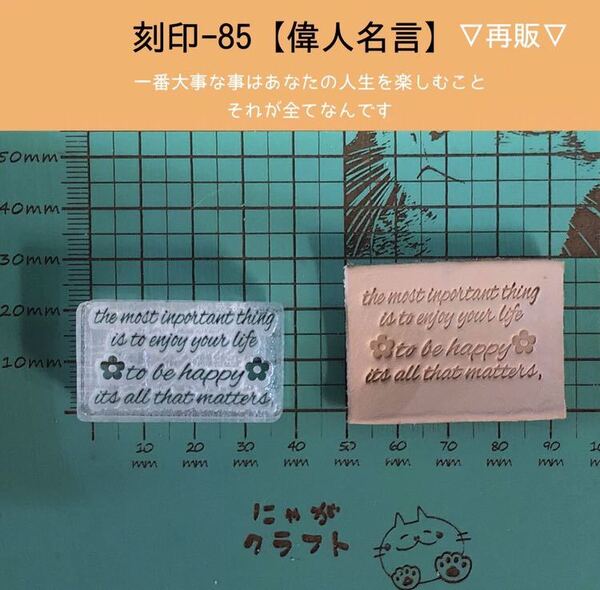 刻印-85【偉人名言】
▽再販▽
一番大事な事はあなたの人生を楽しむこと
それが全てなんです
50mm
40mm
30mm
20mm
10mm
the most inportant thing
is to enjoy your life
to be happy
its all that matters.
the most inportant thing
is to enjoy your life
to be happy
its all that matters.
10 20 30 40 50 60 70 80 90
mm mm mm mm mm mm mm mm mm
にゃが
クラフト